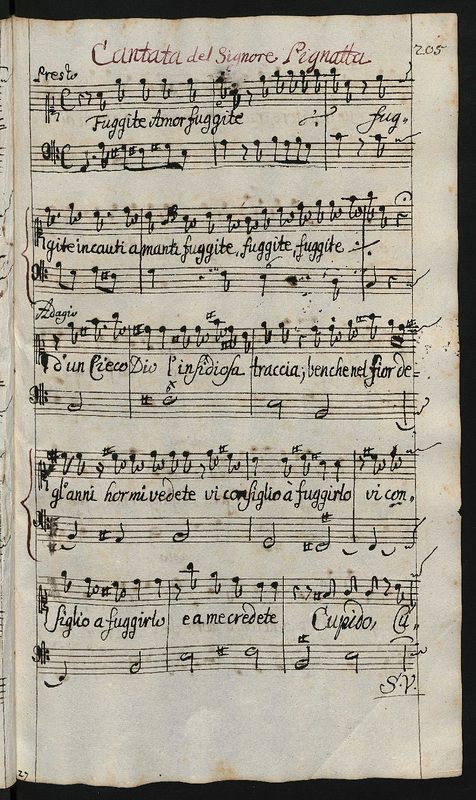 Cantata del Signore Pignatta 205
Presto
Fuggite Amor fuggite fug-
gite incauti amanti fuggite, fuggite, fuggite
Adagio
d'un Cieco Dio l'insidiosa traccia; benche nel fior de-
gl'anni hor mi vedete vi consiglio à fuggirlo vi con-
siglio a fuggirlo e a me credete Cupido, Cu-
S.V.
27